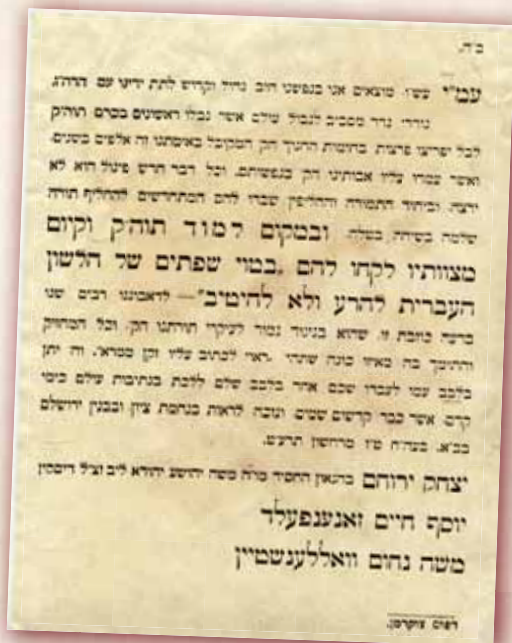 ב״ה.
עמ״י עש״ו. מוצאים אנו בנפשנו חוב גדול וקדוש לתת ידינו עם הרה״ג
גודרי גדר מסביב לגבול עולם אשר גבלו ראשונים בכרם תוה״ק
לבל יפרצו פרצות בחומות החנוך הק׳ המקובל באומתנו זה אלפים בשנים.
ואשר עמדו עליו אבותינו הק׳ בנפשותם. וכל דבר חדש פיגול הוא לא
ירצה. וביחוד התמורה והחליפין שבדו להם המתחדשים להחליף תורה
שלמה בשיחה בטלה. ובמקום למוד תוה״ק וקיום
מצוותיו לקחו להם ״בטוי שפתים של הלשון
העברית להרע ולא להיטיב״ — לדאבוננו רבים שגו
בדעה כוזבת זו, שהוא בניגוד גמור לעיקרי תורתנו הק׳. וכל המחזיק
והתומך בה באיזו כונה שתהי׳ ראוי לכתוב עליו זקן ממרא. וה׳ יתן
בלבב עמו לעבדו שכם אחד בלבב שלם ללכת בנתיבות עולם כימי
קדם, אשר כבר קדשום שמים. ונזכה לראות בנחמת ציון ובבנין ירושלם
בב״א. בעה״ח ט״ז מרחשון תרע״ט.
יצחק ירוחם בהגאון החסיד מרה משה יהושע יהודא ליב זצ״ל דיסקין
יוסף חיים זאנענפעלד
משה נחום וואללענשטיין
דפוס צוקרמן.